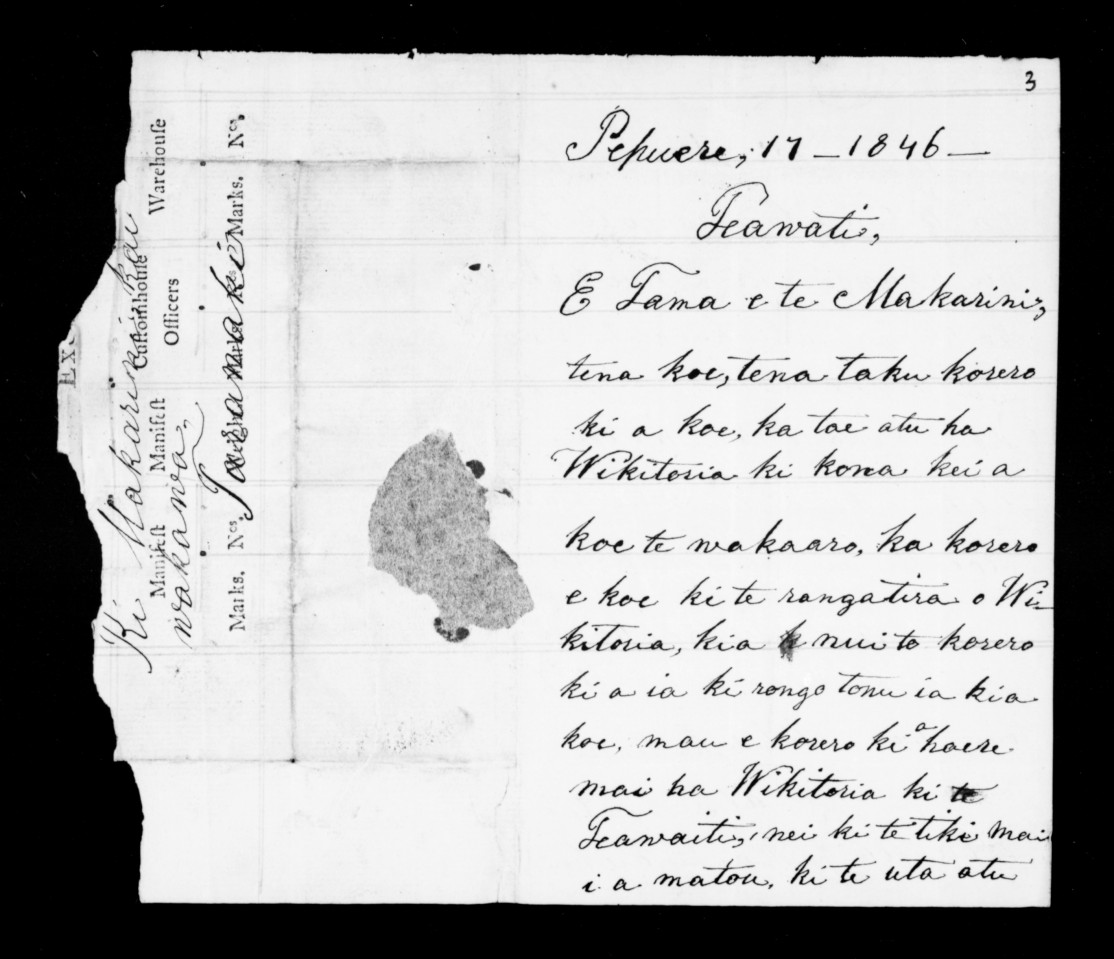 3
Pepuere, 17 – 1846 –
Teawati,
E Tama e te Makarini,
tena koe, tena taku korero
ki a koe, ka tae atu ha
Wikitoria ki kona kei a
koe te wakaaro, ka korero
e koe ki te rangatira o Wi-
kitoria, kia nui to korero
ki a ia ki rongo tonu ia kia
koe, mau e korero kia haere
mai ha Wikitoria ki te
Teawaiti, nei ki te tiki mai
i a matou, ki te uta atu
Ki Makarini kai
wakawa,
Taranaki
EX
Manifest Manifest Customhouse Warehouse
Officers
Marks. Nos. Weights Marks Nos. Marks. Nos.